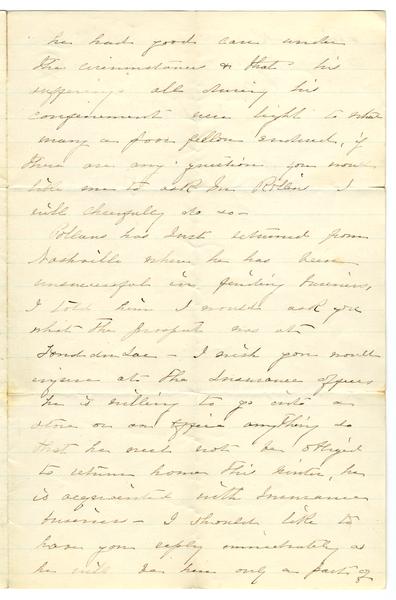 he had good care under
the circumstances & that his
sufferings all during his
confinement were light to what
many a poor fellow endured, if
there are any question you would
like me to ask Mr Rollins I
will cheerfully do so—
Rollins has Just returned from
Nashville where he has been
unsuccessful in finding business,
I told him I would ask you
what the prospects was at
Fond du Lac — I wish you would
inquire at the Insurance offices
he is willing to go into a
store or an office anything so
that he need not be obliged
to return home this winter, he
is acquainted with Insurance
business — I should like to
have you reply immediately as
he will be here only a part of